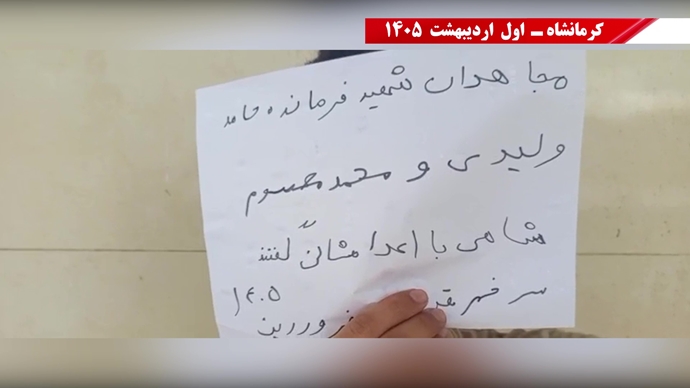 کرمانشاه ــ اول اردیبهشت ۱۴۰۵
مجاهدان شهید فرمانده حامد
ولیدی و محمد معصوم
شاهی با اعدامشان
سر
۱۴۰۵
فروردین